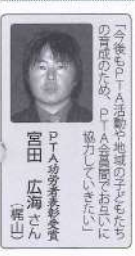 「今後もPTA活動や地域の子どもたち
の育成のため、PTA会員間でお互いに
協力していきたい」
PTA功労者表彰受賞
宮田 広海さん
(梶山)